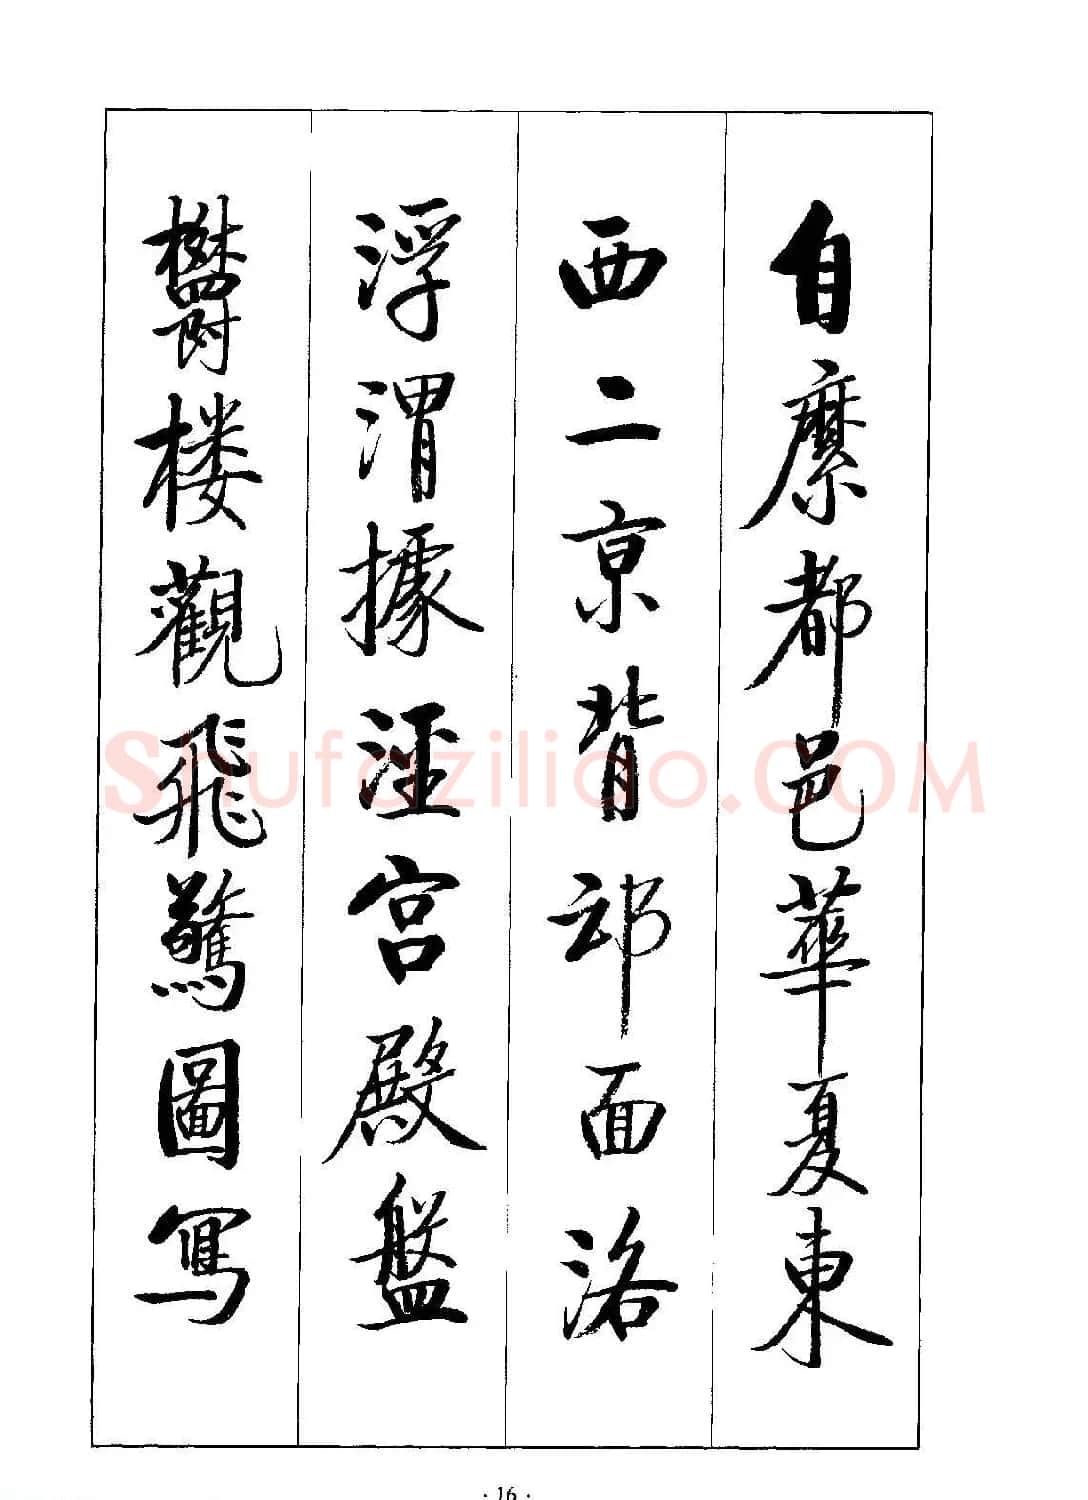 自縻都邑華夏東
西二京背邙面洛
浮渭據涇宮殿盤
鬱楼觀飛驚圖寫
shufaziliao.COM
· 16 ·